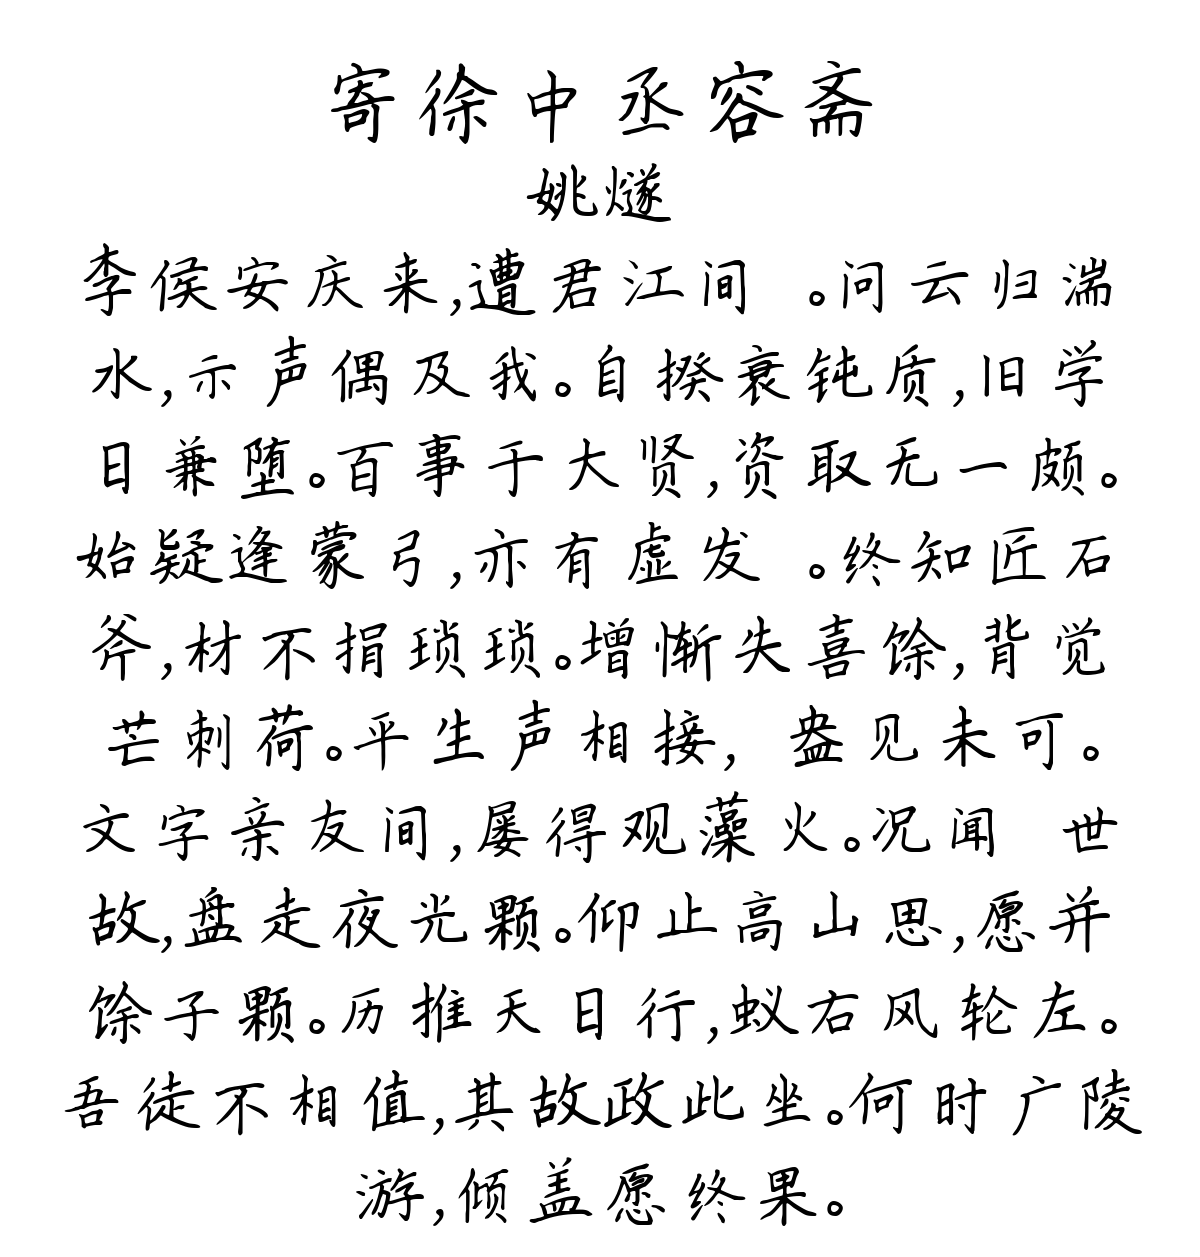 寄徐中丞容斋
姚燧
李侯安庆来,遭君江间 。问云归湍
水,示声偶及我。自揆衰钝质,旧学
日兼堕。百事于大贤,资取无一颇。
始疑逢蒙弓,亦有虚发 。终知匠石
斧,材不捐琐琐。增惭失喜馀,背觉
芒刺荷。平生声相接, 盎见未可。
文字亲友间,屡得观藻火。况闻 世
故,盘走夜光颗。仰止高山思,愿并
馀子颗。历推天日行,蚁右风轮左。
吾徒不相值,其故政此坐。何时广陵
游,倾盖愿终果。